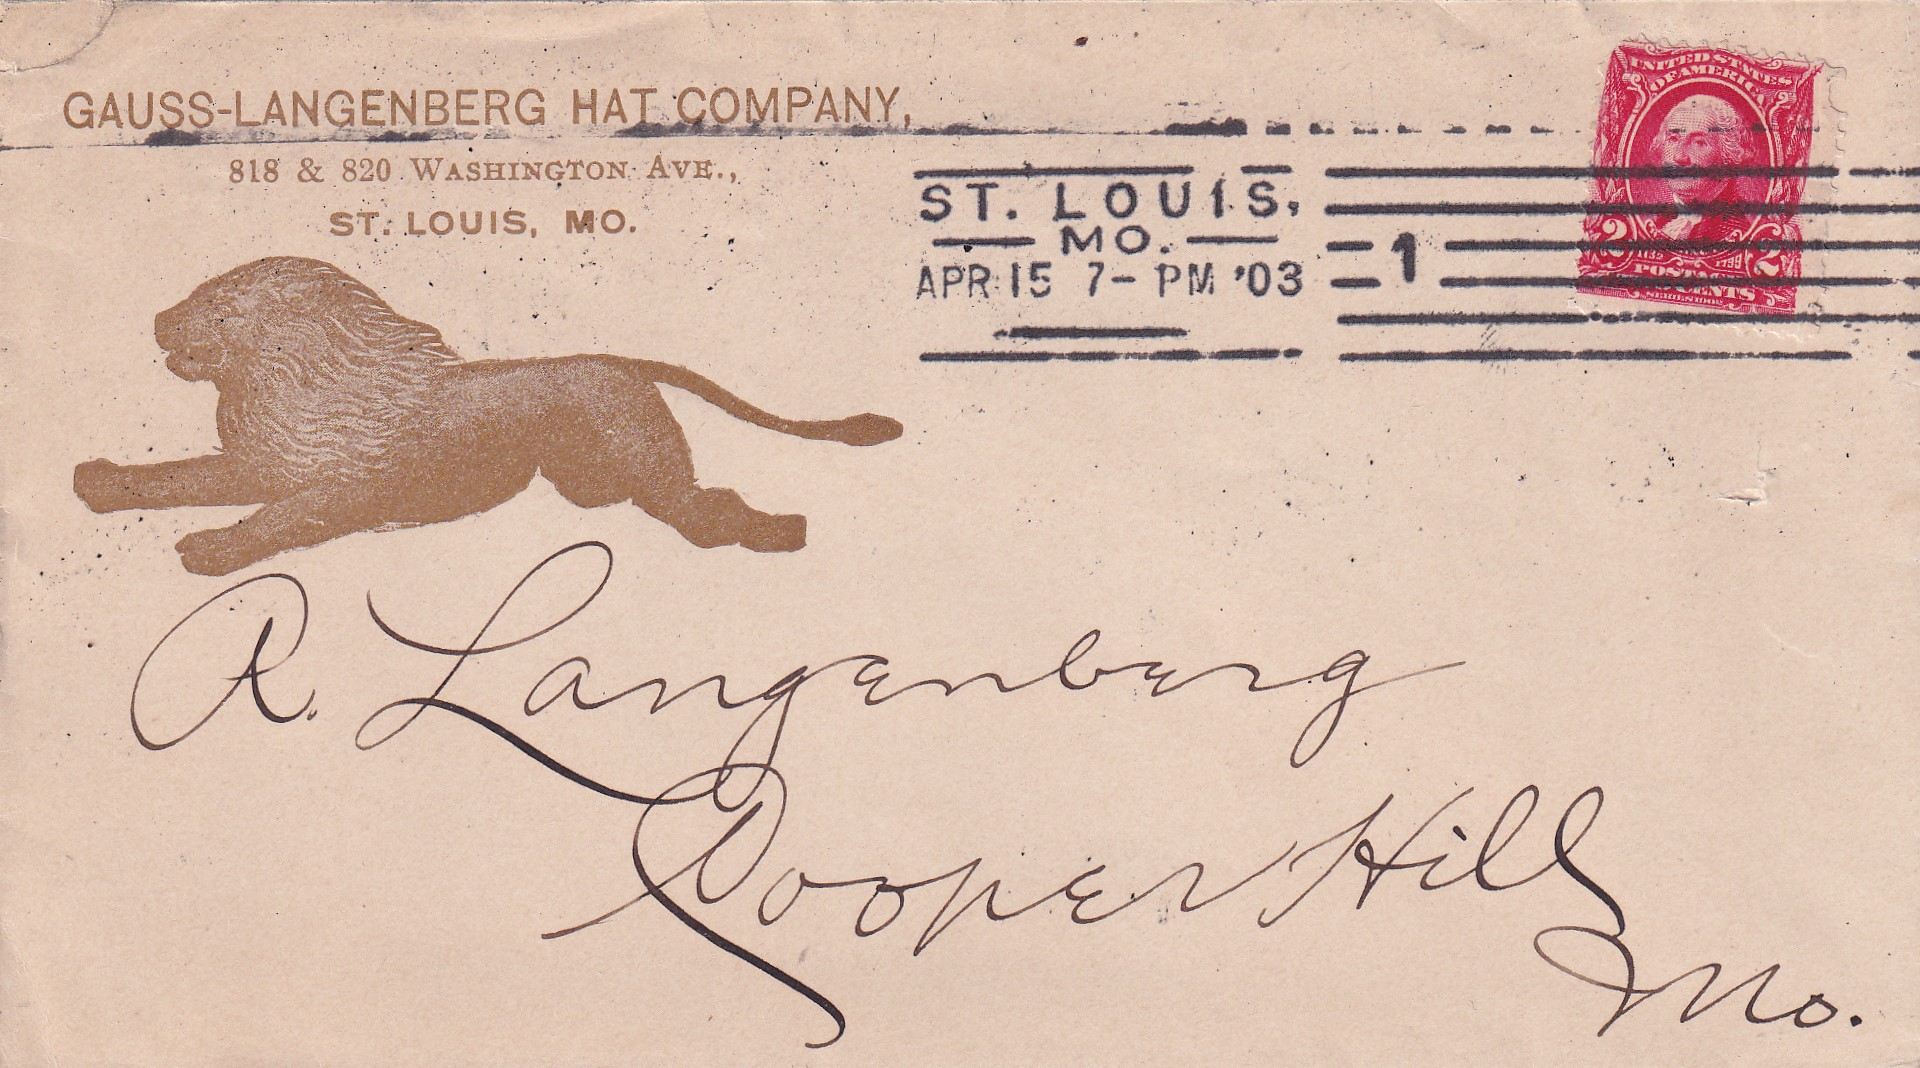 GAUSS-LANGENBERG HAT COMPANY,
818 & 820 WASHINGTON AVE.,
ST. LOUIS, MO.
ST. LOUIS,
MO.
APR 15 7- PM '03
1
UNITED STATES
OF AMERICA
2 1732 1799 2
POSTAGE
TWO CENTS
SERIES 1902
R. Langenberg
Cooper Hill
Mo.